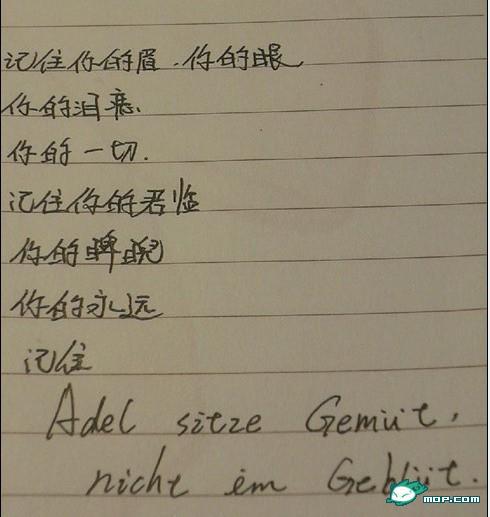 记住你的眉.你的眼
你的泪痣.
你的一切.
记住你的君临
你的睥睨
你的永远
记住
Adel sitze Gemüt,
nicht em Geblüt.
MOP.COM